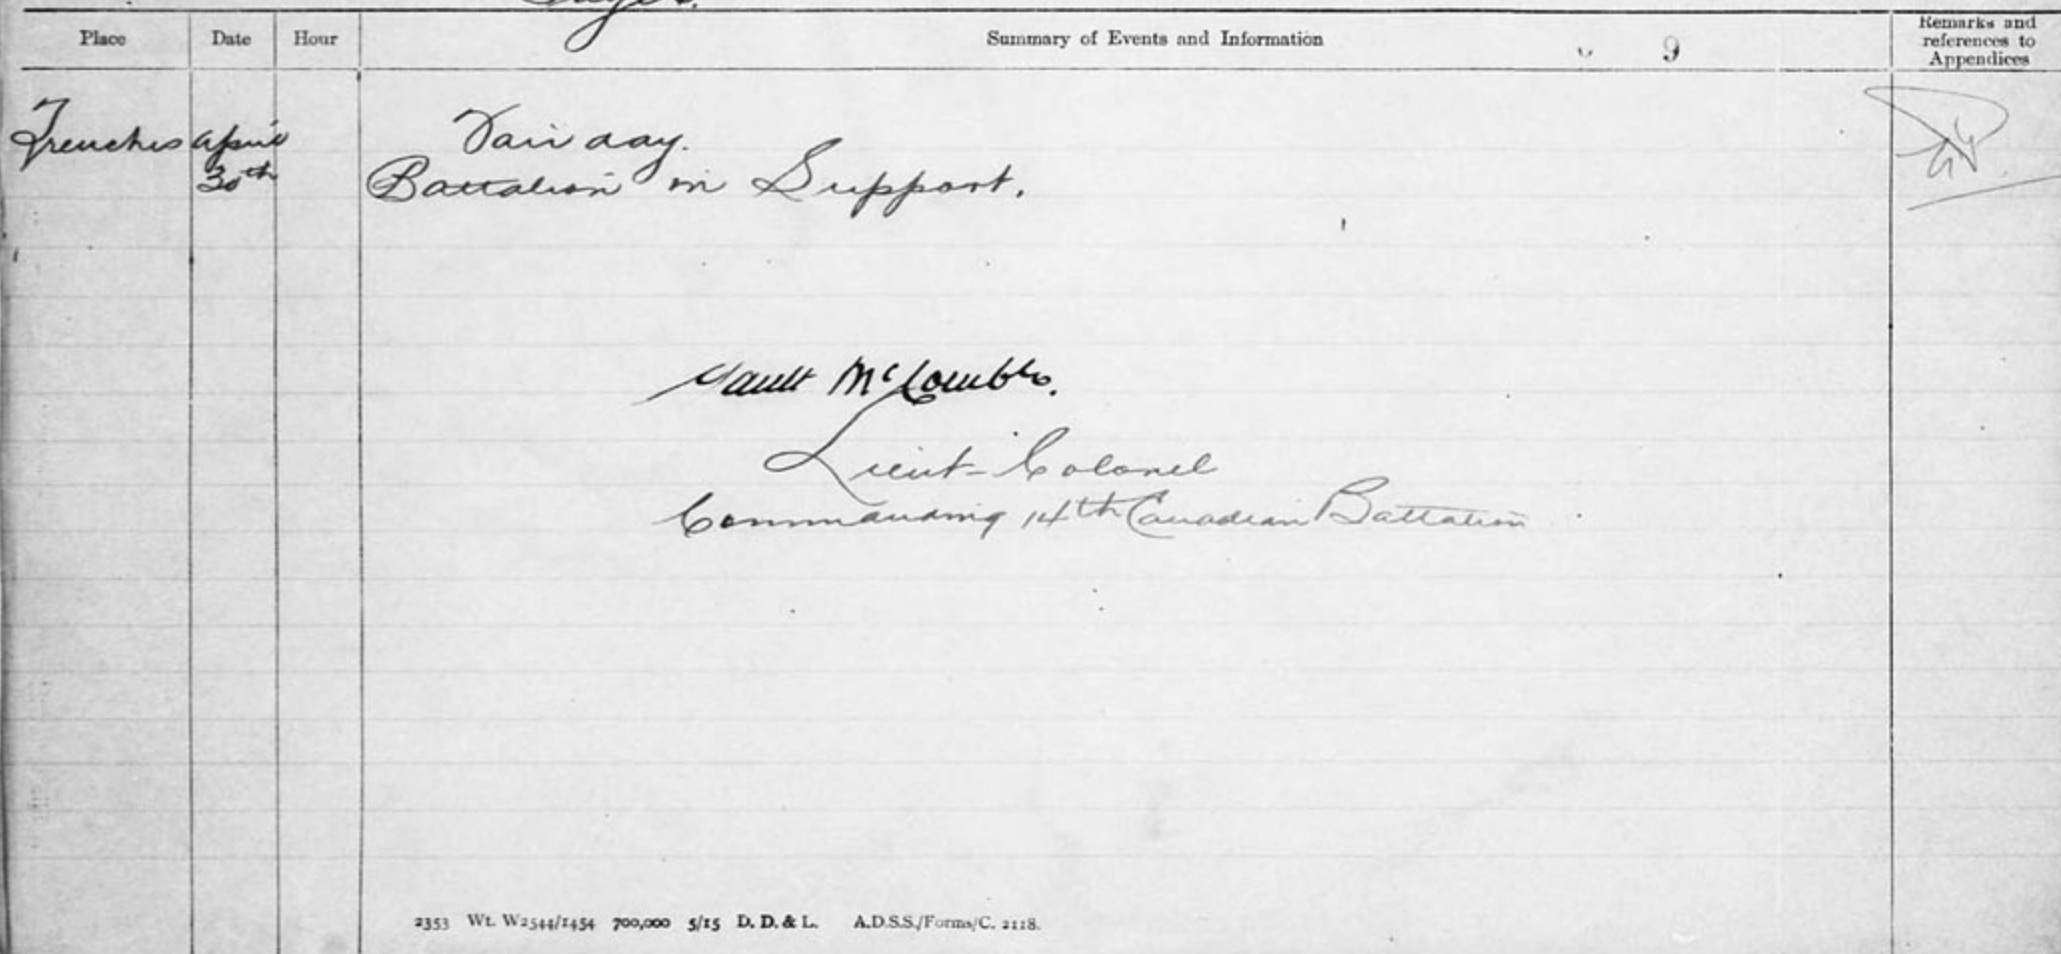 Place Date Hour Summary of Events and Information 9 Remarks and references to Appendices
Trenches April Fair day.
30th Battalion in Support.
Gault McCombe.
Lieut-Colonel
Commanding 14th Canadian Battalion
2353 Wt. W2544/1454 700,000 5/15 D. D. & L. A.D.S.S./Forms/C. 2118.